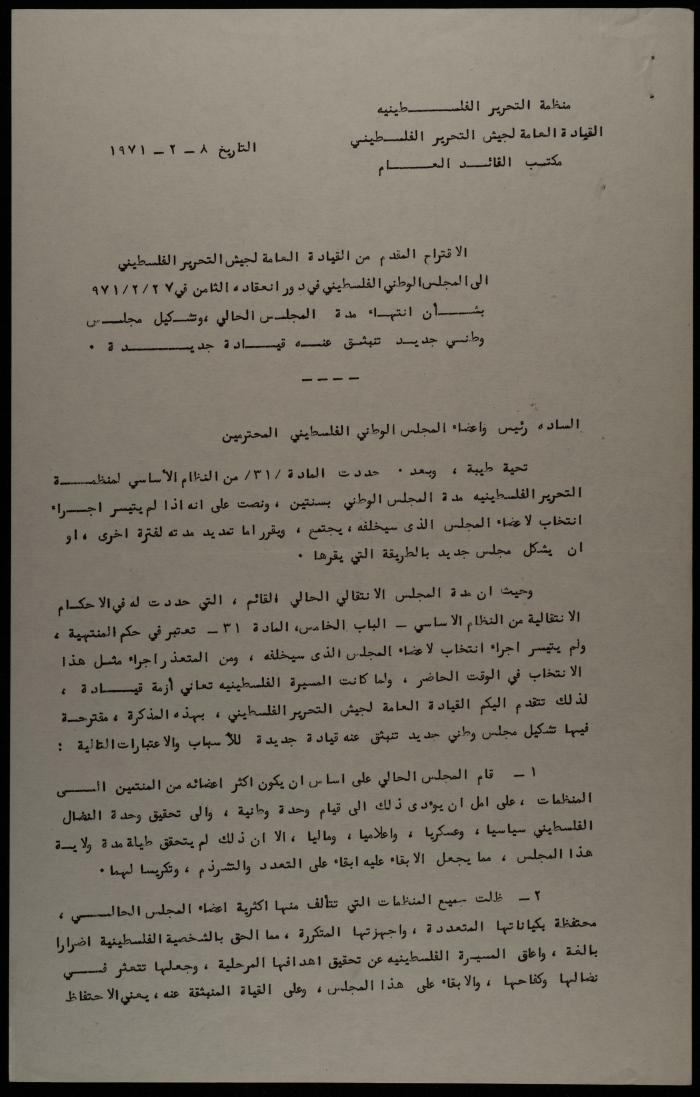 منظمة التحرير الفلسـطينيه
القيادة العامة لجيش التحرير الفلسـطيني
التاريخ ٨ - ٢ - ١٩٧١
مكتب القائد العـام
الاقتراح المقدم من القيادة العامة لجيش التحرير الفلسطيني
الى المجلس الوطني الفلسطيني في دور انعقاده الثامن في ٩٧١/٢/٢٧
بشـأن انتهاء مدة المجلس الحالي ،وتشكيل مجلـس
وطنـي جديد تنبثـق عنـه قيـادة جديـدة ٠
----
الساده رئيس واعضاء المجلس الوطني الفلسطيني المحترمين
تحية طيبة ، وبعد ٠ حددت المادة /٣١/ من النظام الأساسي لمنظمـة
التحرير الفلسطينيه مدة المجلس الوطني بسنتين ، ونصت على انه اذا لم يتيسر اجـراء
انتخاب لاعضاء المجلس الذى سيخلفه ، يجتمع ، ويقرر اما تمديد مدته لفترة اخرى ، او
ان يشكل مجلس جديد بالطريقة التي يقرها ٠
وحيث ان مدة المجلس الانتقالي الحالي القائم ، التي حددت له في الاحكـام
الانتقالية من النظام الاساسي - الباب الخامس، المادة ٣١ - تعتبر في حكم المنتهية ،
ولم يتيسر اجراء انتخاب لاعضاء المجلس الذى سيخلفه ، ومن المتعذر اجراء مثـل هذا
الانتخاب في الوقت الحاضر ، ولما كانت المسيرة الفلسطينيه تعاني أزمة قيـادة ،
لذلك تتقدم اليكم القيادة العامة لجيش التحرير الفلسطيني ، بهذه المذكرة ، مقترحـة
فيها تشكيل مجلس وطني جديد تنبثق عنه قيادة جديدة للأسباب والاعتبارات التالية :
١ - قام المجلس الحالي على اساس ان يكون اكثر اعضائه من المنتمين الـى
المنظمات ، على امل ان يوءدى ذلك الى قيام وحدة وطنية ، والى تحقيق وحدة النضال
الفلسطيني سياسيا ، وعسكريا ، واعلاميا ، وماليا ، الا ان ذلك لم يتحقق طيلة مدة ولايـة
هذا المجلس ، مما يجعل الابقاء عليه ابقاء على التعدد والتشرذم ، وتكريسا لهما ٠
٢ - ظلت سميع المنظمات التي تتألف منها اكثرية اعضاء المجلس الحالـي ،
محتفظة بكياناتها المتعددة ، واجهزتها المتكررة ، مما الحق بالشخصية الفلسطينية اضرارا
بالغة ، واعاق المسيرة الفلسطينيه عن تحقيق اهدافها المرحلية ، وجعلها تتعثر فـي
نضالها وكفاحها ، والابقاء على هذا المجلس ، وعلى القياة المنبثقة عنه ، يعني الاحتفاظ